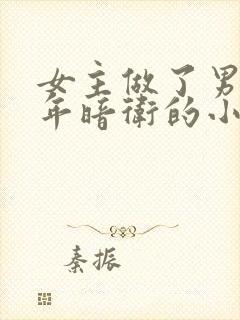 女主做了男
年暗衛的小
秦振